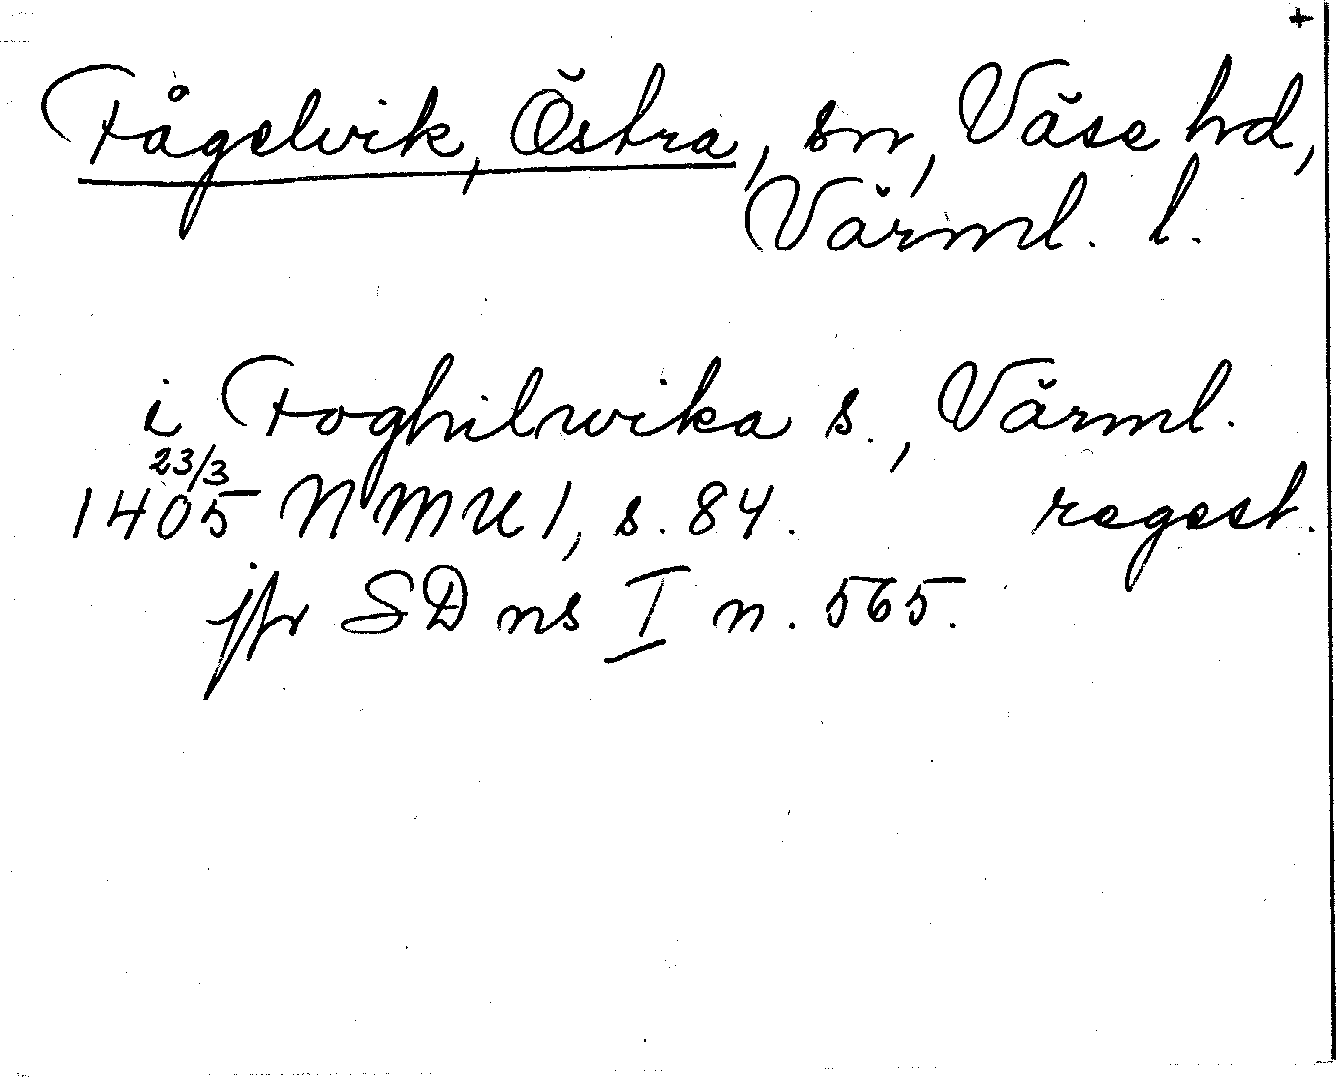 +
Fågelvik, Östra, sn, Väse hd,
Värml. l.
i Foghilwika s., Värml.
1405 23/3 NMU 1, s. 84. regest.
jfr SD ns I n. 565.